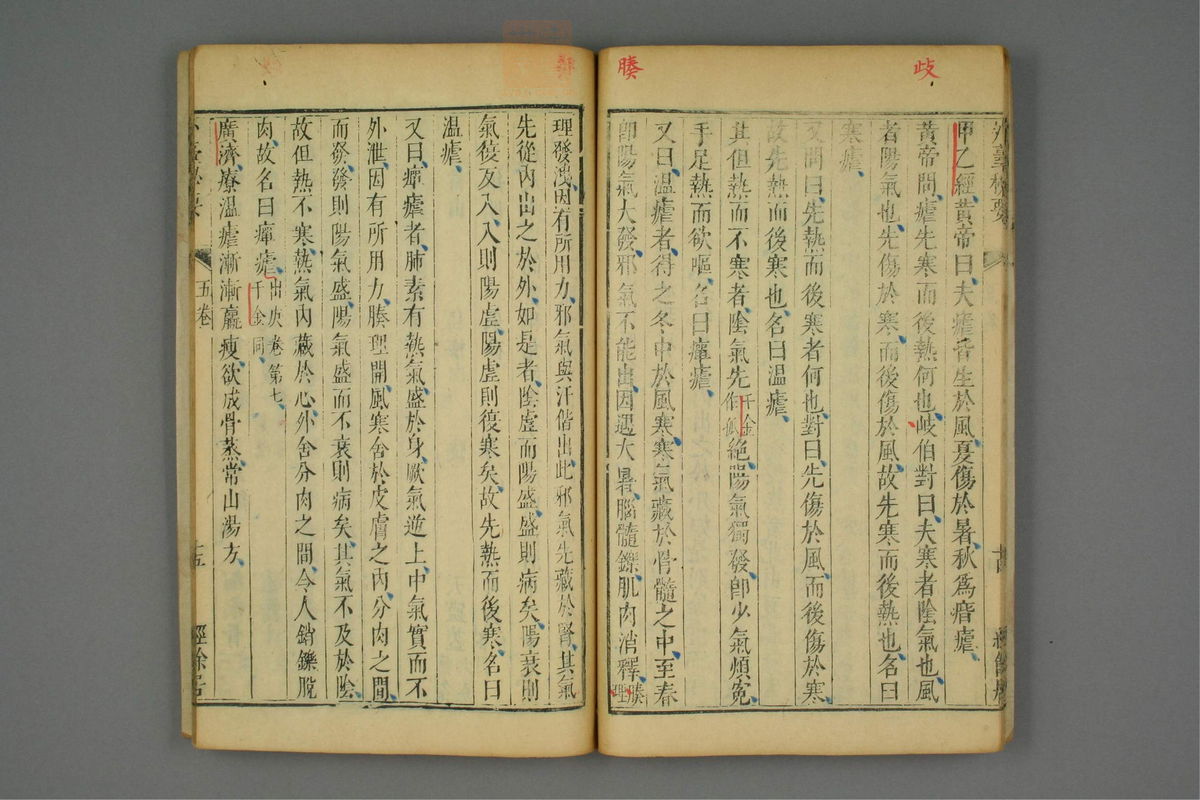 歧
腠
外臺秘要
甲乙經黃帝曰夫瘧皆生於風夏傷於暑秋爲痎瘧
黃帝問瘧先寒而後熱何也岐伯對曰夫寒者陰氣也風
者陽氣也先傷於寒而後傷於風故先寒而後熱也名曰
寒瘧
又問曰先熱而後寒者何也對曰先傷於風而後傷於寒
故先熱而後寒也名曰温瘧
其但熱而不寒者陰氣先千金作孤絕陽氣獨發卽少氣煩寃
手足熱而欲嘔名曰癉瘧
又曰温瘧者得之冬中於風寒寒氣藏於骨髓之中至春
卽陽氣大發邪氣不能出因遇大暑腦髓鑠肌肉消釋腠理
理發洩因有所用力邪氣與汗偕出此邪氣先藏於腎其氣
先從內出之於外如是者陰虛而陽盛盛則病矣陽衰則
氣復反入入則陽虛陽虛則復寒矣故先熱而後寒名曰
温瘧
又曰癉瘧者肺素有熱氣盛於身厥氣逆上中氣實而不
外泄因有所用力腠理開風寒舍於皮膚之內分肉之間
而發發則陽氣盛陽氣盛而不衰則病矣其氣不及於陰
故但熱不寒熱氣內藏於心外舍分肉之間令人銷鑠脫
肉故名曰癉瘧出庚卷第七千金同
廣濟療温瘧漸漸羸瘦欲成骨蒸常山湯方
外臺秘要 五卷 十五 經餘居